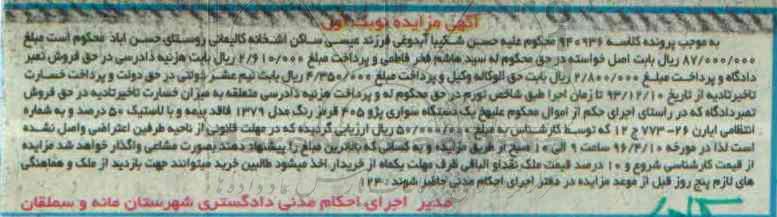 آگهی مزایده نوبت اول
به موجب پرونده کلاسه ۹۴۰۹۳۶ محکوم علیه حسن شکیبا آبدوغی فرزند عیسی ساکن اشخانه کالیمانی روستای حسن اباد محکوم است مبلغ
۸۷/۰۰۰/۰۰۰ ریال بابت اصل خواسته در حق محکوم له سید هاشم فخر فاطمی و پرداخت مبلغ ۲/۶۱۰/۰۰۰ ریال بابت هزینه دادرسی در حق فروش تمبر
دادگاه و پرداخت مبلغ ۲/۸۰۰/۰۰۰ ریال بابت حق الوکاله وکیل و پرداخت مبلغ ۴/۳۵۰/۰۰۰ ریال بابت نیم عشر دولتی در حق دولت و پرداخت خسارت
تاخیر تادیه از تاریخ ۹۳/۱۲/۱۰ تا زمان اجرا طبق شاخص تورم در حق محکوم له و پرداخت هزینه دادرسی متعلقه به میزان خسارت تاخیر تادیه در حق فروش
تمبر دادگاه که در راستای اجرای حکم از اموال محکوم علیه یک دستگاه سواری پژو ۴۰۵ قرمز رنگ مدل ۱۳۷۹ فاقد بیمه و با لاستیک ۵۰ درصد و به شماره
انتظامی ایران ۲۶-۷۷۳ ج ۱۲ که توسط کارشناس به مبلغ ۵۰/۰۰۰/۰۰۰ ریال ارزیابی گردیده که در مهلت قانونی از ناحیه طرفین اعتراضی واصل نشده
است لذا در مورخه ۹۶/۴/۱۰ ساعت ۹ الی ۱۰ صبح از طریق مزایده و به کسانی که بالاترین مبلغ را پیشنهاد دهند بصورت مشاعی واگذار خواهد شد مزایده
از قیمت کارشناسی شروع و ۱۰ درصد قیمت ملک نقدا و الباقی ظرف مهلت یکماه از خریدار اخذ میشود طالبین خرید میتوانند جهت بازدید از ملک و هماهنگی
های لازم پنج روز قبل از موعد مزایده در دفتر اجرای احکام مدنی حاضر شوند. ۱۲۴
مدیر اجرای احکام مدنی دادگستری شهرستان مانه و سملقان